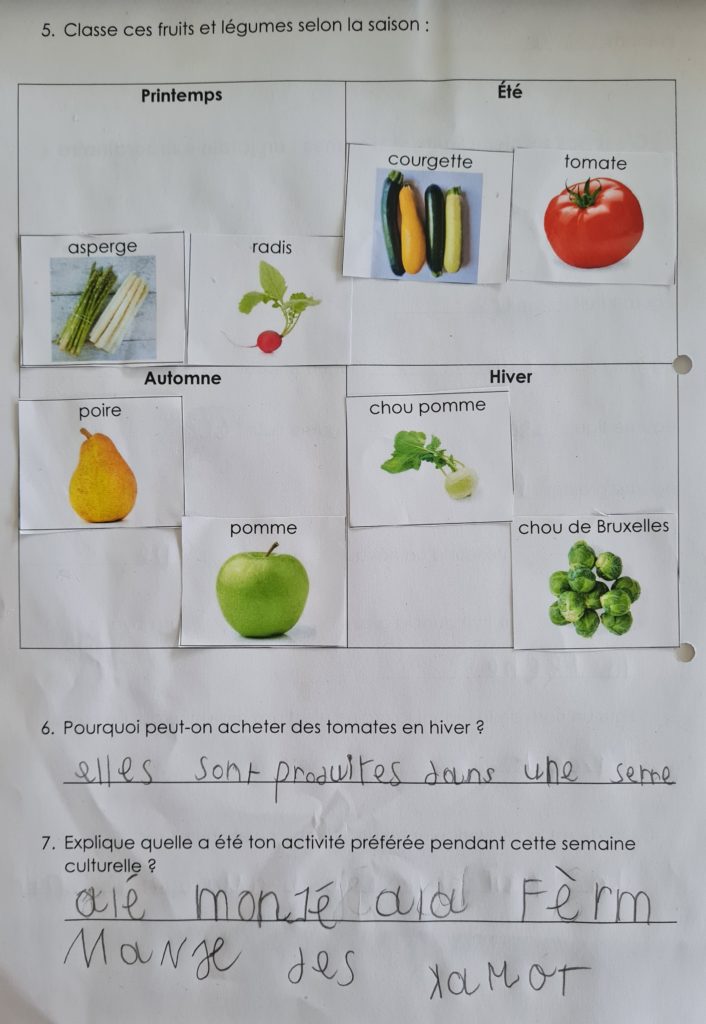 5. Classe ces fruits et légumes selon la saison :
Printemps
Été
courgette
tomate
asperge
radis
Automne
Hiver
poire
chou pomme
pomme
chou de Bruxelles
6. Pourquoi peut-on acheter des tomates en hiver ?
elles sont produites dans une serre
7. Explique quelle a été ton activité préférée pendant cette semaine
culturelle ?
alé monjé ala Fèrm
Manje des